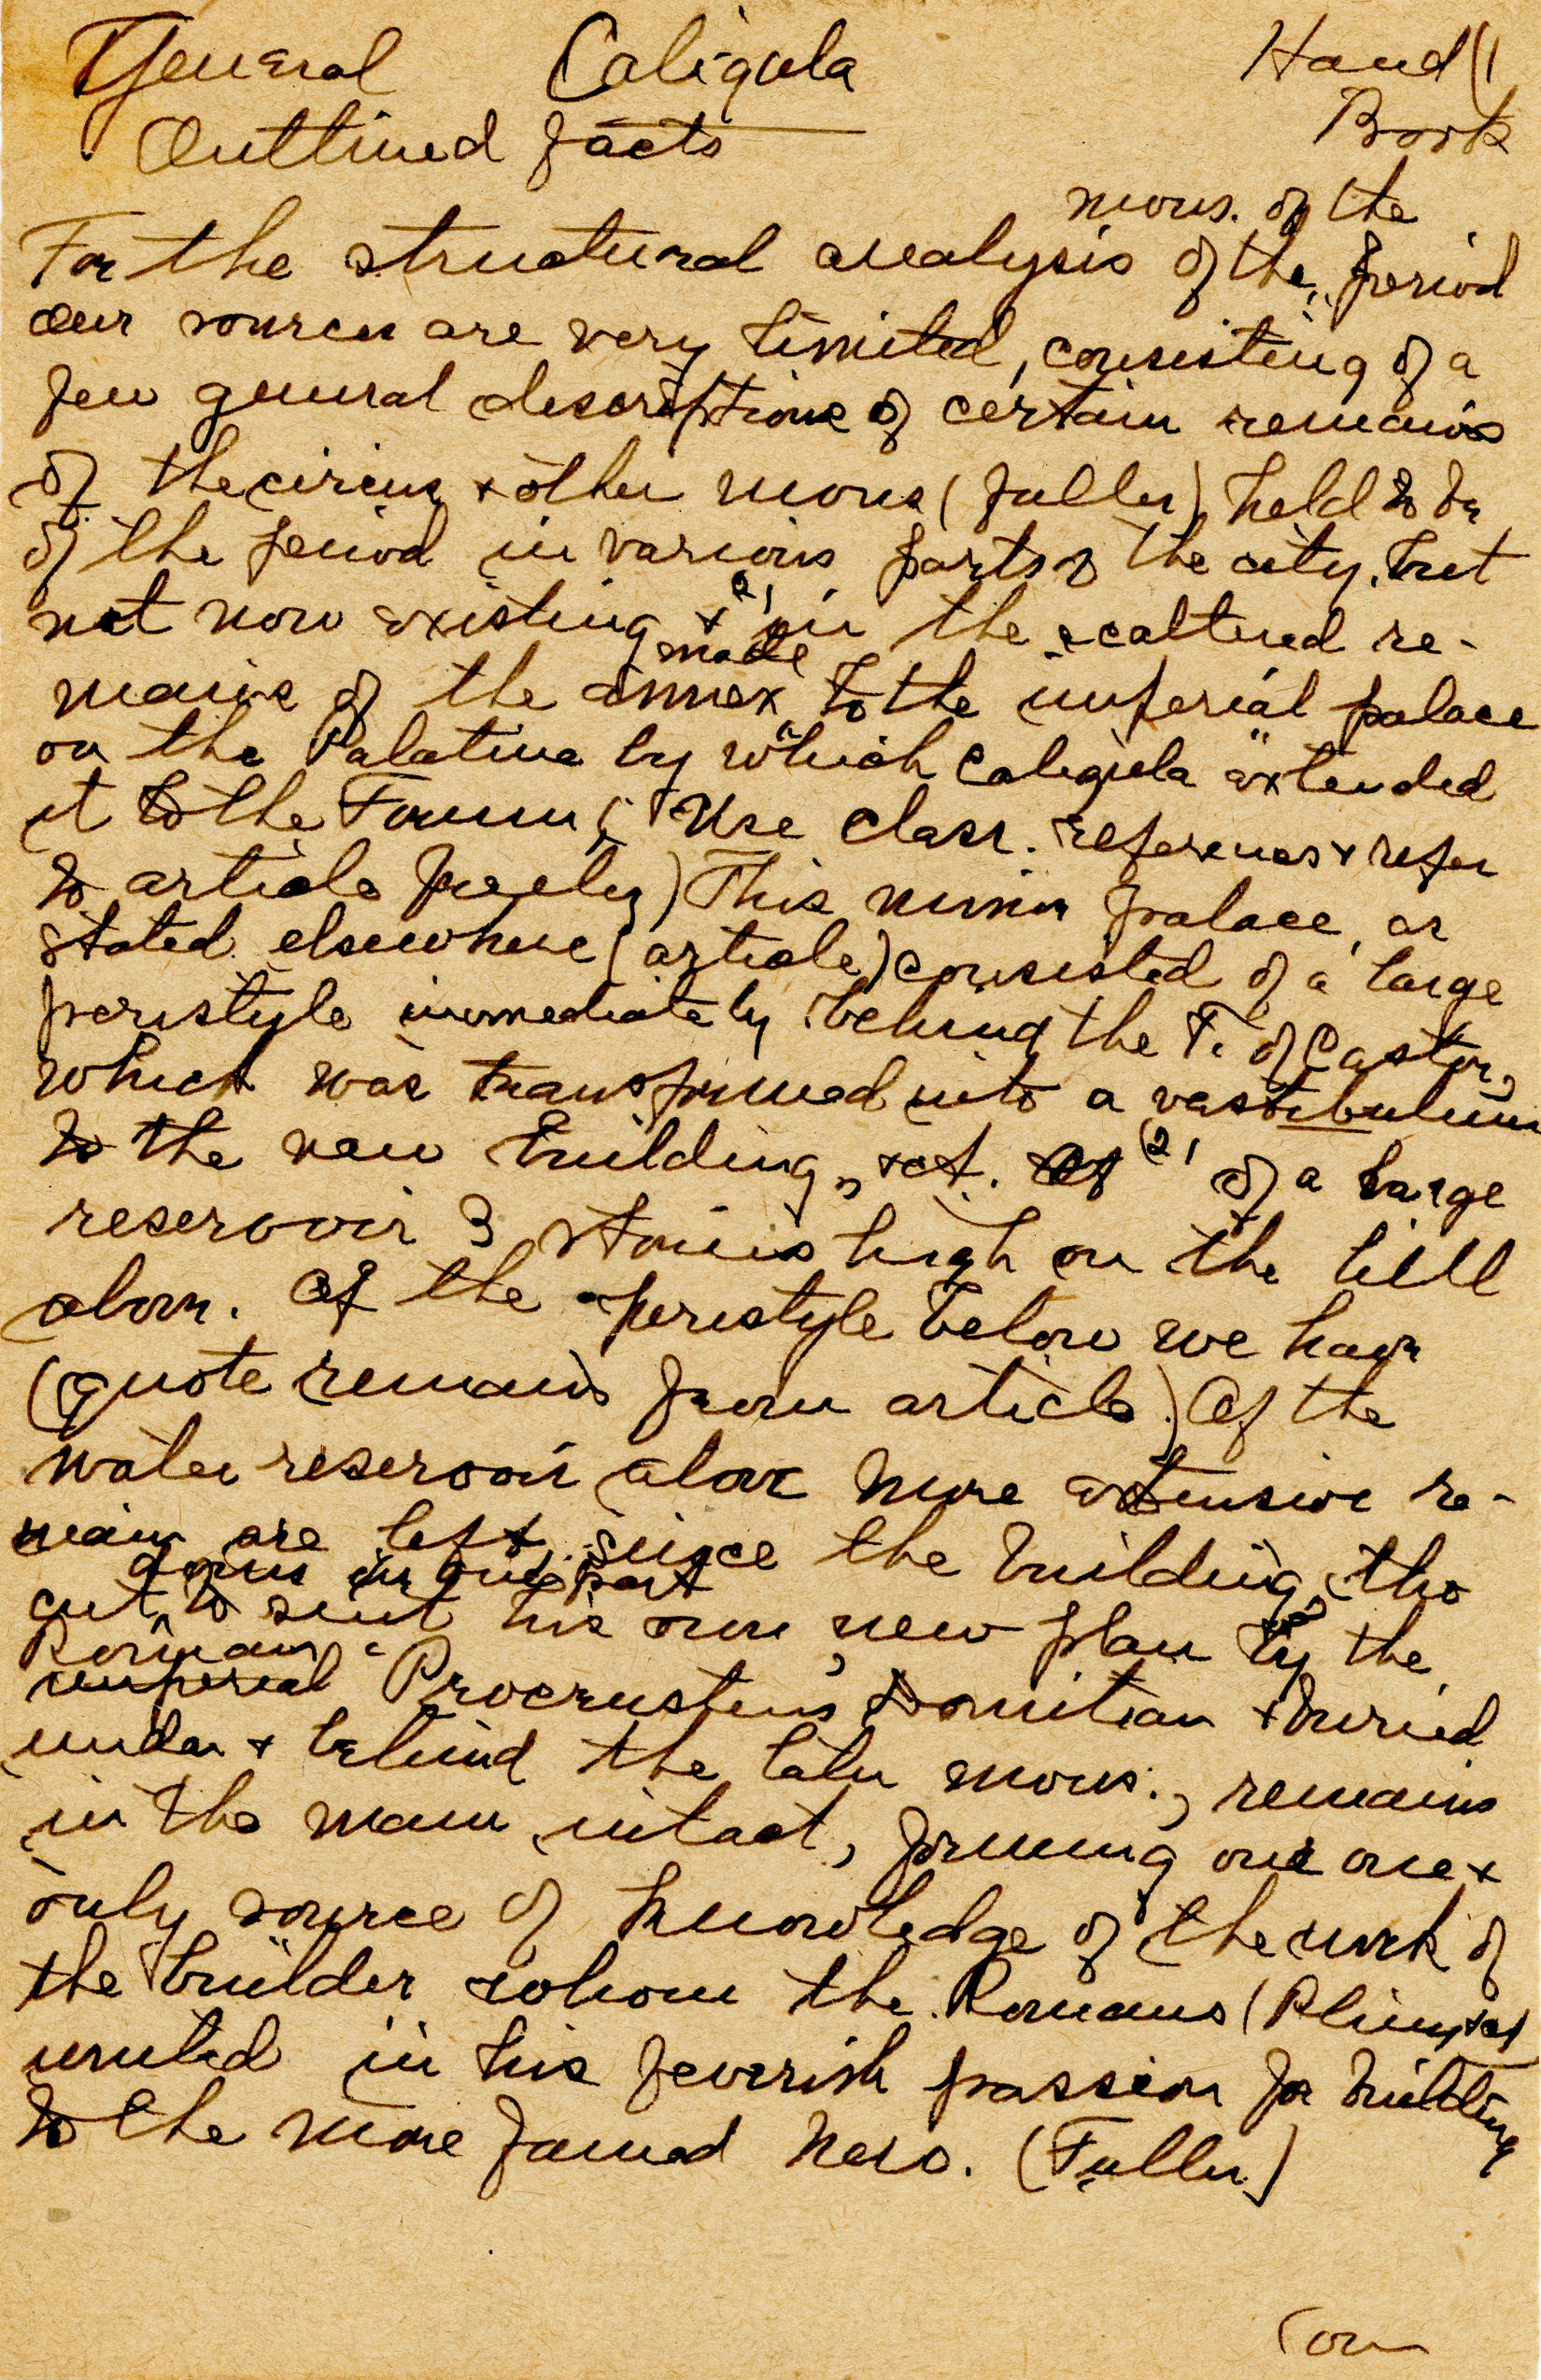 General Caligula Hand (1
Outlined facts Book
mons. of the
For the structural analysis of the period
our sources are very limited, consisting of a
few general descriptions of certain remains
of the circus & other mons (fuller) held to be
of the period in various parts of the city, but
not now existing & (2) in the scattered re-
made
mains of the annex to the imperial palace
on the Palatine by which Caligula extended
it to the Forum; (Use class. references & refer
to article freely) This minor palace, as
stated elsewhere (article) consisted of a large
peristyle immediately behind the T. of Castor,
which was transformed into a vestibulum
to the new building, &ct. (2) of a large
reservoir 3 stories high on the hill
above. Of the peristyle below we have
(quote remains from article.) Of the
water reservoir above more extensive re-
mains are left, since the building, tho
down in one part
cut to suit his own new plan by the
Roman
imperial Procrustens Domitian & buried
under & behind the later mons., remains
in the main intact, forming our one &
only source of knowledge of the work of
the builder whom the Romans (Pliny &ct
united in his feverish passion for building
to the more famed Nero. (Fuller)
(over